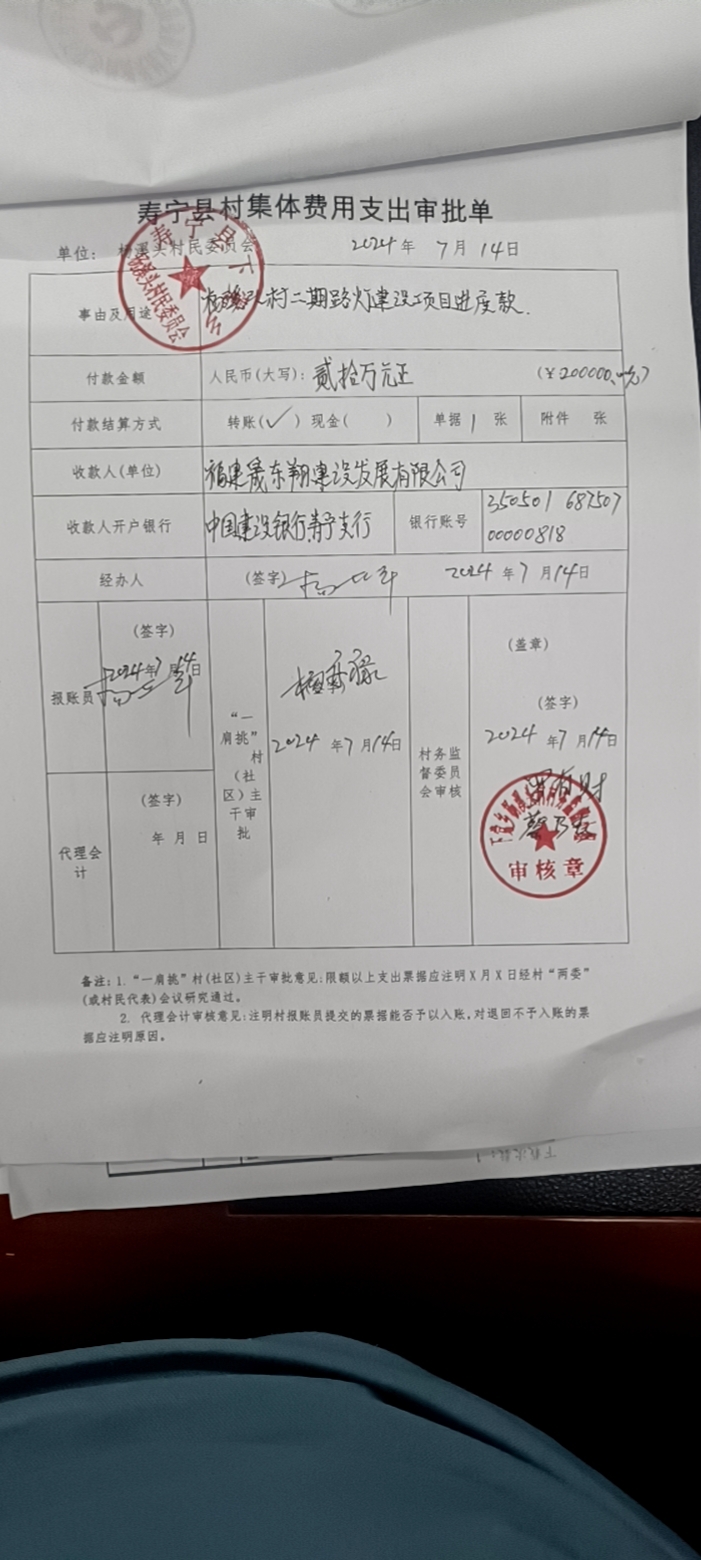 寿宁县村集体费用支出审批单
单位：杨溪头村民委员会 2024年 7月 14日
寿宁县下
杨溪头村民委员会
事由及用途 杨溪头村二期路灯建设项目进度款.
付款金额 人民币(大写): 贰拾万元正 (¥200000.元)
付款结算方式 转账(✓) 现金( ) 单据 1 张 附件 张
收款人(单位) 福建晟东翔建设发展有限公司
收款人开户银行 中国建设银行寿宁支行 银行账号 350501 687507
00000818
经办人 (签字) 2024 年 7 月 14日
报账员 (签字)
2024年7月14日
“一肩挑”村(社区)主干审批
2024 年 7 月 14日
村务监督委员会审核
(盖章)
(签字)
2024 年 7 月 14日
审核章
代理会计 (签字)
年 月 日
备注: 1. “一肩挑”村(社区)主干审批意见:限额以上支出票据应注明X月X日经村“两委”
(或村民代表)会议研究通过。
2. 代理会计审核意见:注明村报账员提交的票据能否予以入账,对退回不予入账的票
据应注明原因。